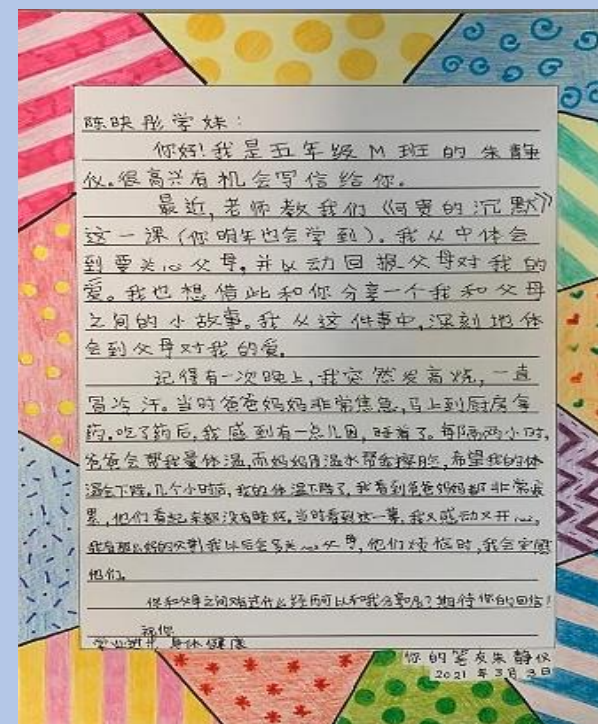 陈映彤学妹：
你好！我是五年级M班的朱静
仪。很高兴有机会写信给你。
最近，老师教我们《可贵的沉默》
这一课（你明年也会学到）。我从中体会
到要关心父母，并以动回报父母对我的
爱。我也想借此和你分享一个我和父母
之间的小故事。我从这件事中，深刻地体
会到父母对我的爱。
记得有一次晚上，我突然发高烧，一直
冒冷汗。当时爸爸妈妈非常焦急，马上到厨房拿
药。吃了药后，我感到有一点儿困，睡着了。每隔两小时，
爸爸会帮我量体温，而妈妈用温水帮我擦脸，希望我的体
温会下降。几个小时后，我的体温下降了，我看到爸爸妈妈都非常疲
累，他们看起来都没有睡好。当时看到这一幕，我又感动又开心，
我有那么好的父母！我以后会多关心父母，他们烦恼时，我会安慰
他们。
你和父母之间有什么经历可以和我分享呢？期待你的回信！
祝你
学业进步，身体健康
你的笔友朱静仪
2021年3月3日